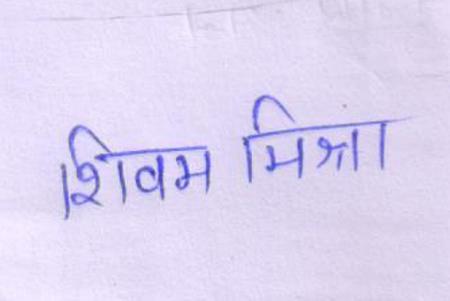 शिवम मिश्रा